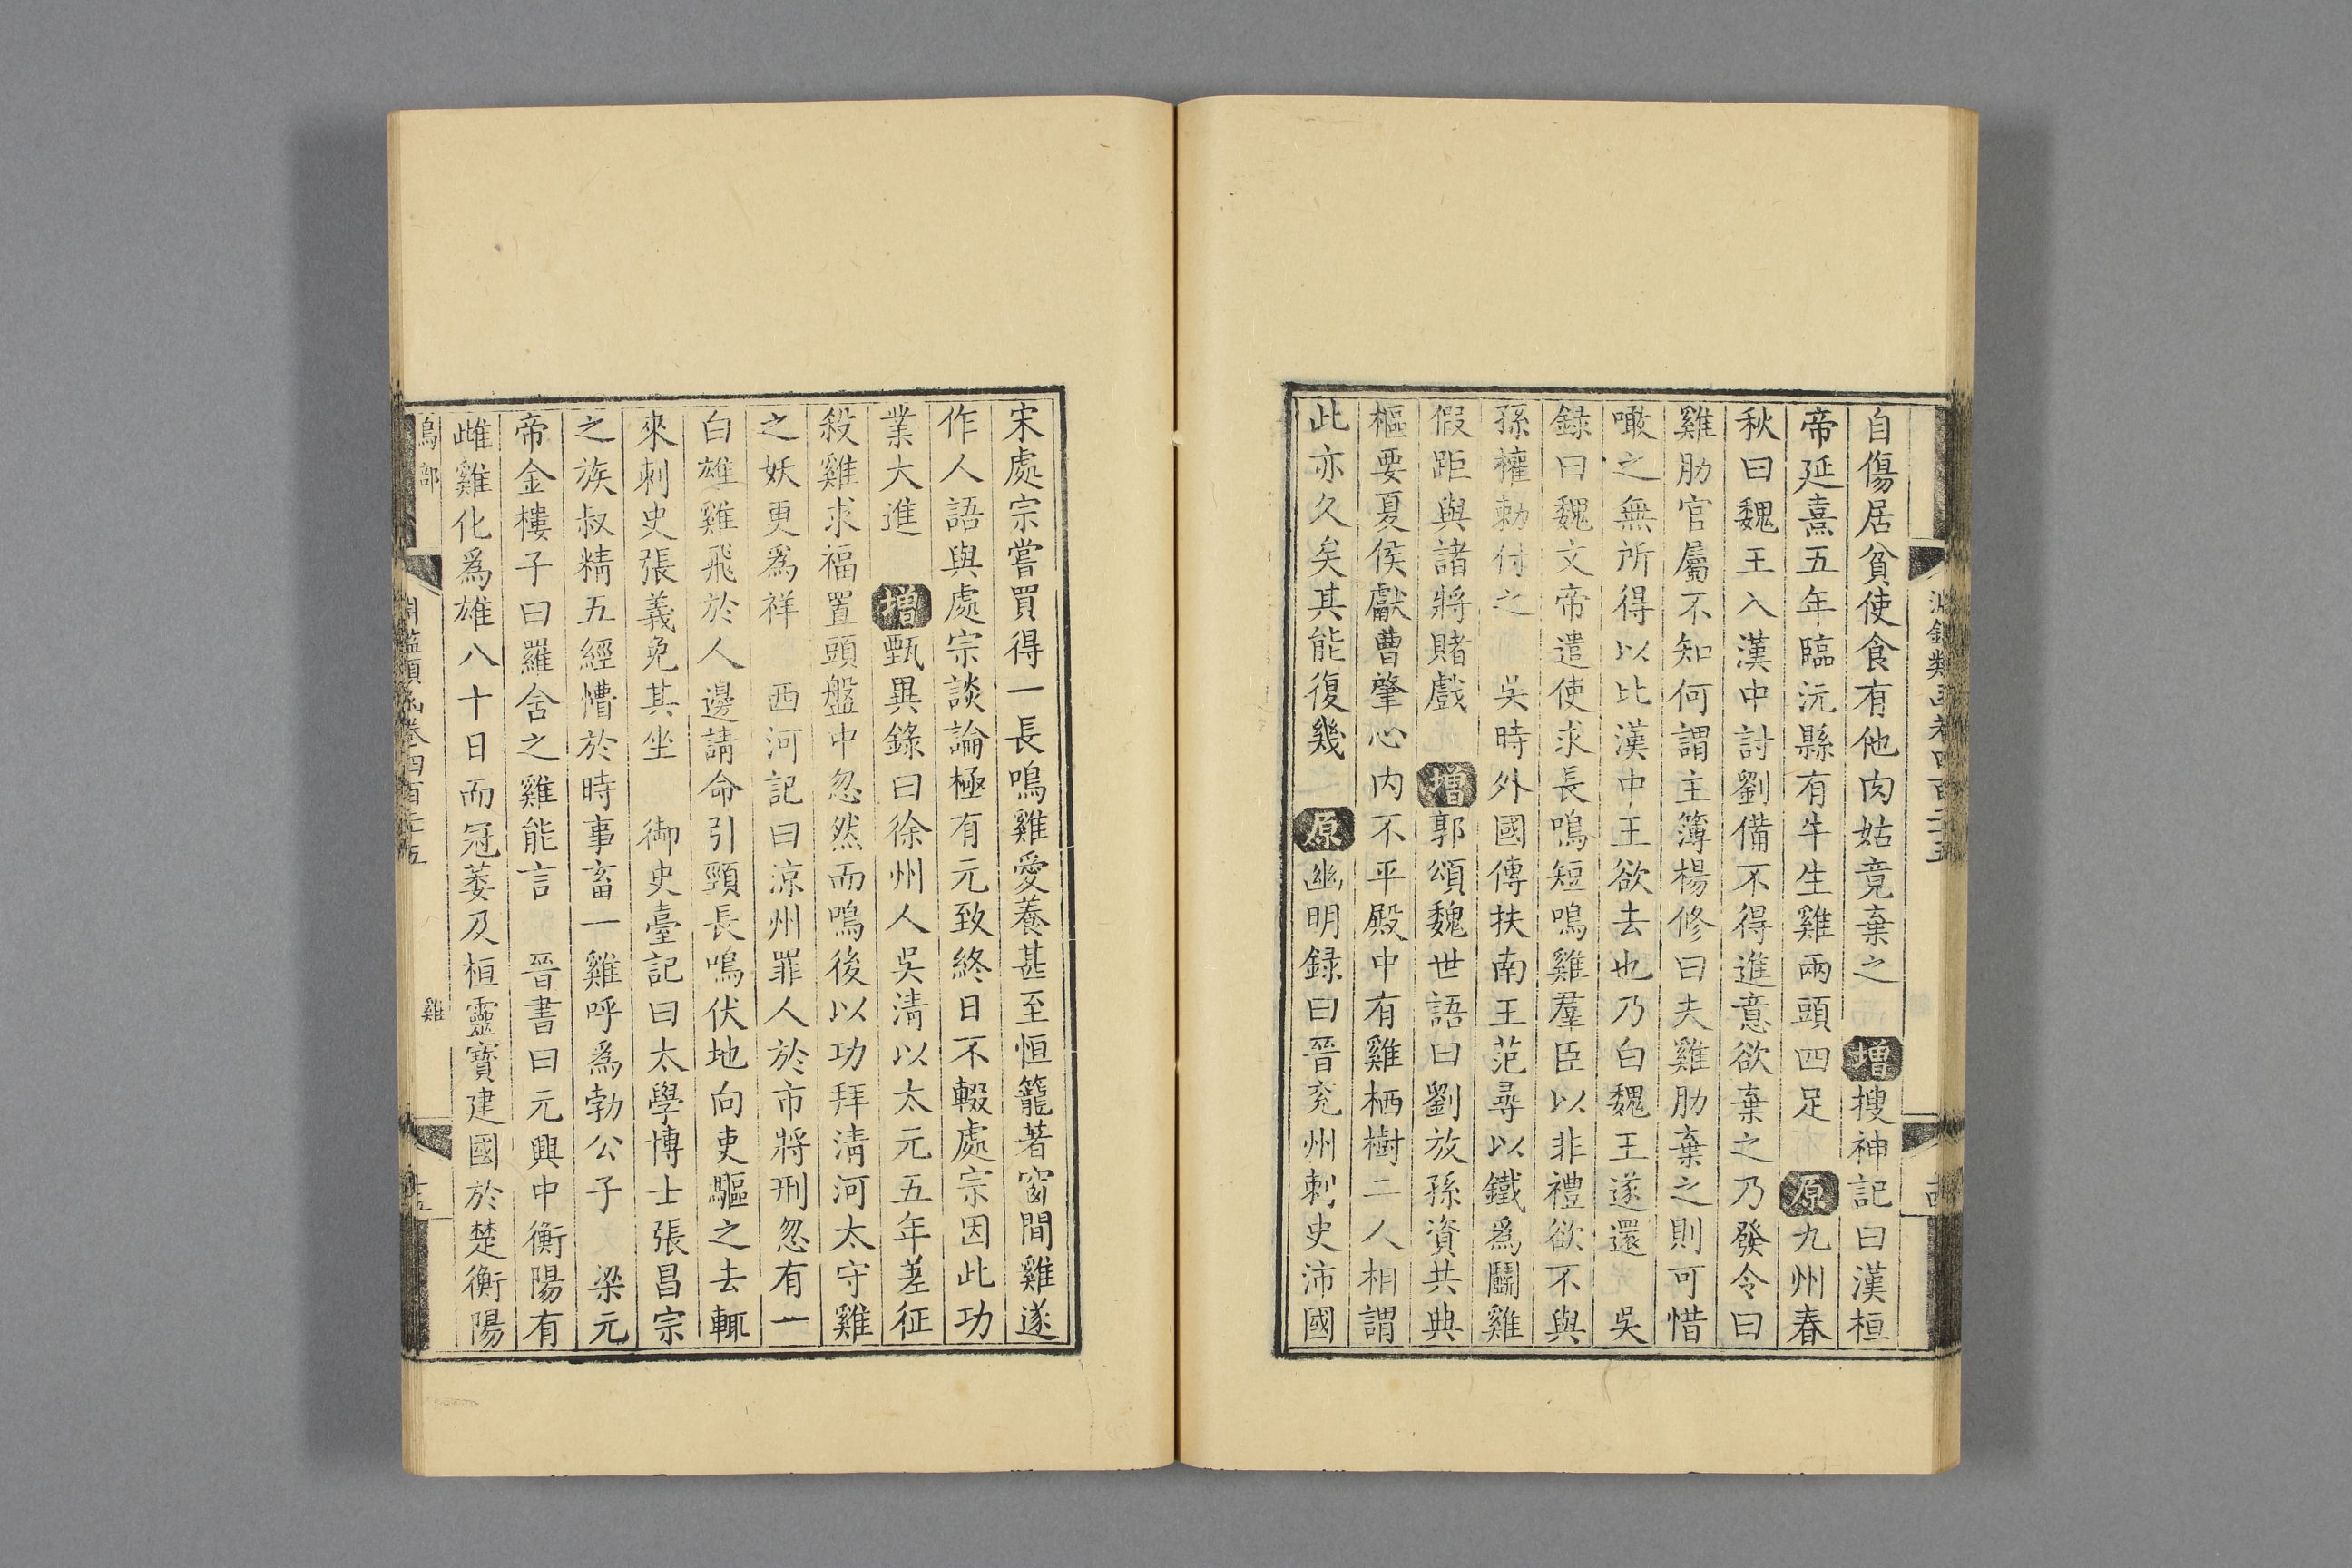 淵鑑類函卷四百二十五
自傷居貧使食有他肉姑竟棄之　增搜神記曰漢桓
帝延熹五年臨沅縣有牛生雞兩頭四足　原九州春
秋曰魏王入漢中討劉備不得進意欲棄之乃發令曰
雞肋官屬不知何謂主簿楊修曰夫雞肋棄之則可惜
噉之無所得以比漢中王欲去也乃白魏王遂還　吳
録曰魏文帝遣使求長鳴短鳴雞羣臣以非禮欲不與
孫權勅付之　吳時外國傳扶南王范尋以鐵爲鬭雞
假距與諸將賭戲　增郭頒魏世語曰劉放孫資共典
樞要夏侯獻曹肇心內不平殿中有雞栖樹二人相謂
此亦久矣其能復幾　原幽明録曰晉兖州刺史沛國
宋處宗嘗買得一長鳴雞愛養甚至恒籠著窗間雞遂
作人語與處宗談論極有元致終日不輟處宗因此功
業大進　增甄異錄曰徐州人吳清以太元五年差征
殺雞求福置頭盤中忽然而鳴後以功拜清河太守雞
之妖更爲祥　西河記曰涼州罪人於市將刑忽有一
白雄雞飛於人邊請命引頸長鳴伏地向吏驅之去輒
來刺史張義免其坐　御史臺記曰太學博士張昌宗
之族叔精五經懵於時事畜一雞呼爲勃公子　梁元
帝金樓子曰羅舍之雞能言　晉書曰元興中衡陽有
雌雞化爲雄八十日而冠萎及桓靈寶建國於楚衡陽
鳥部　淵鑑類函卷四百二十五　雞　十五